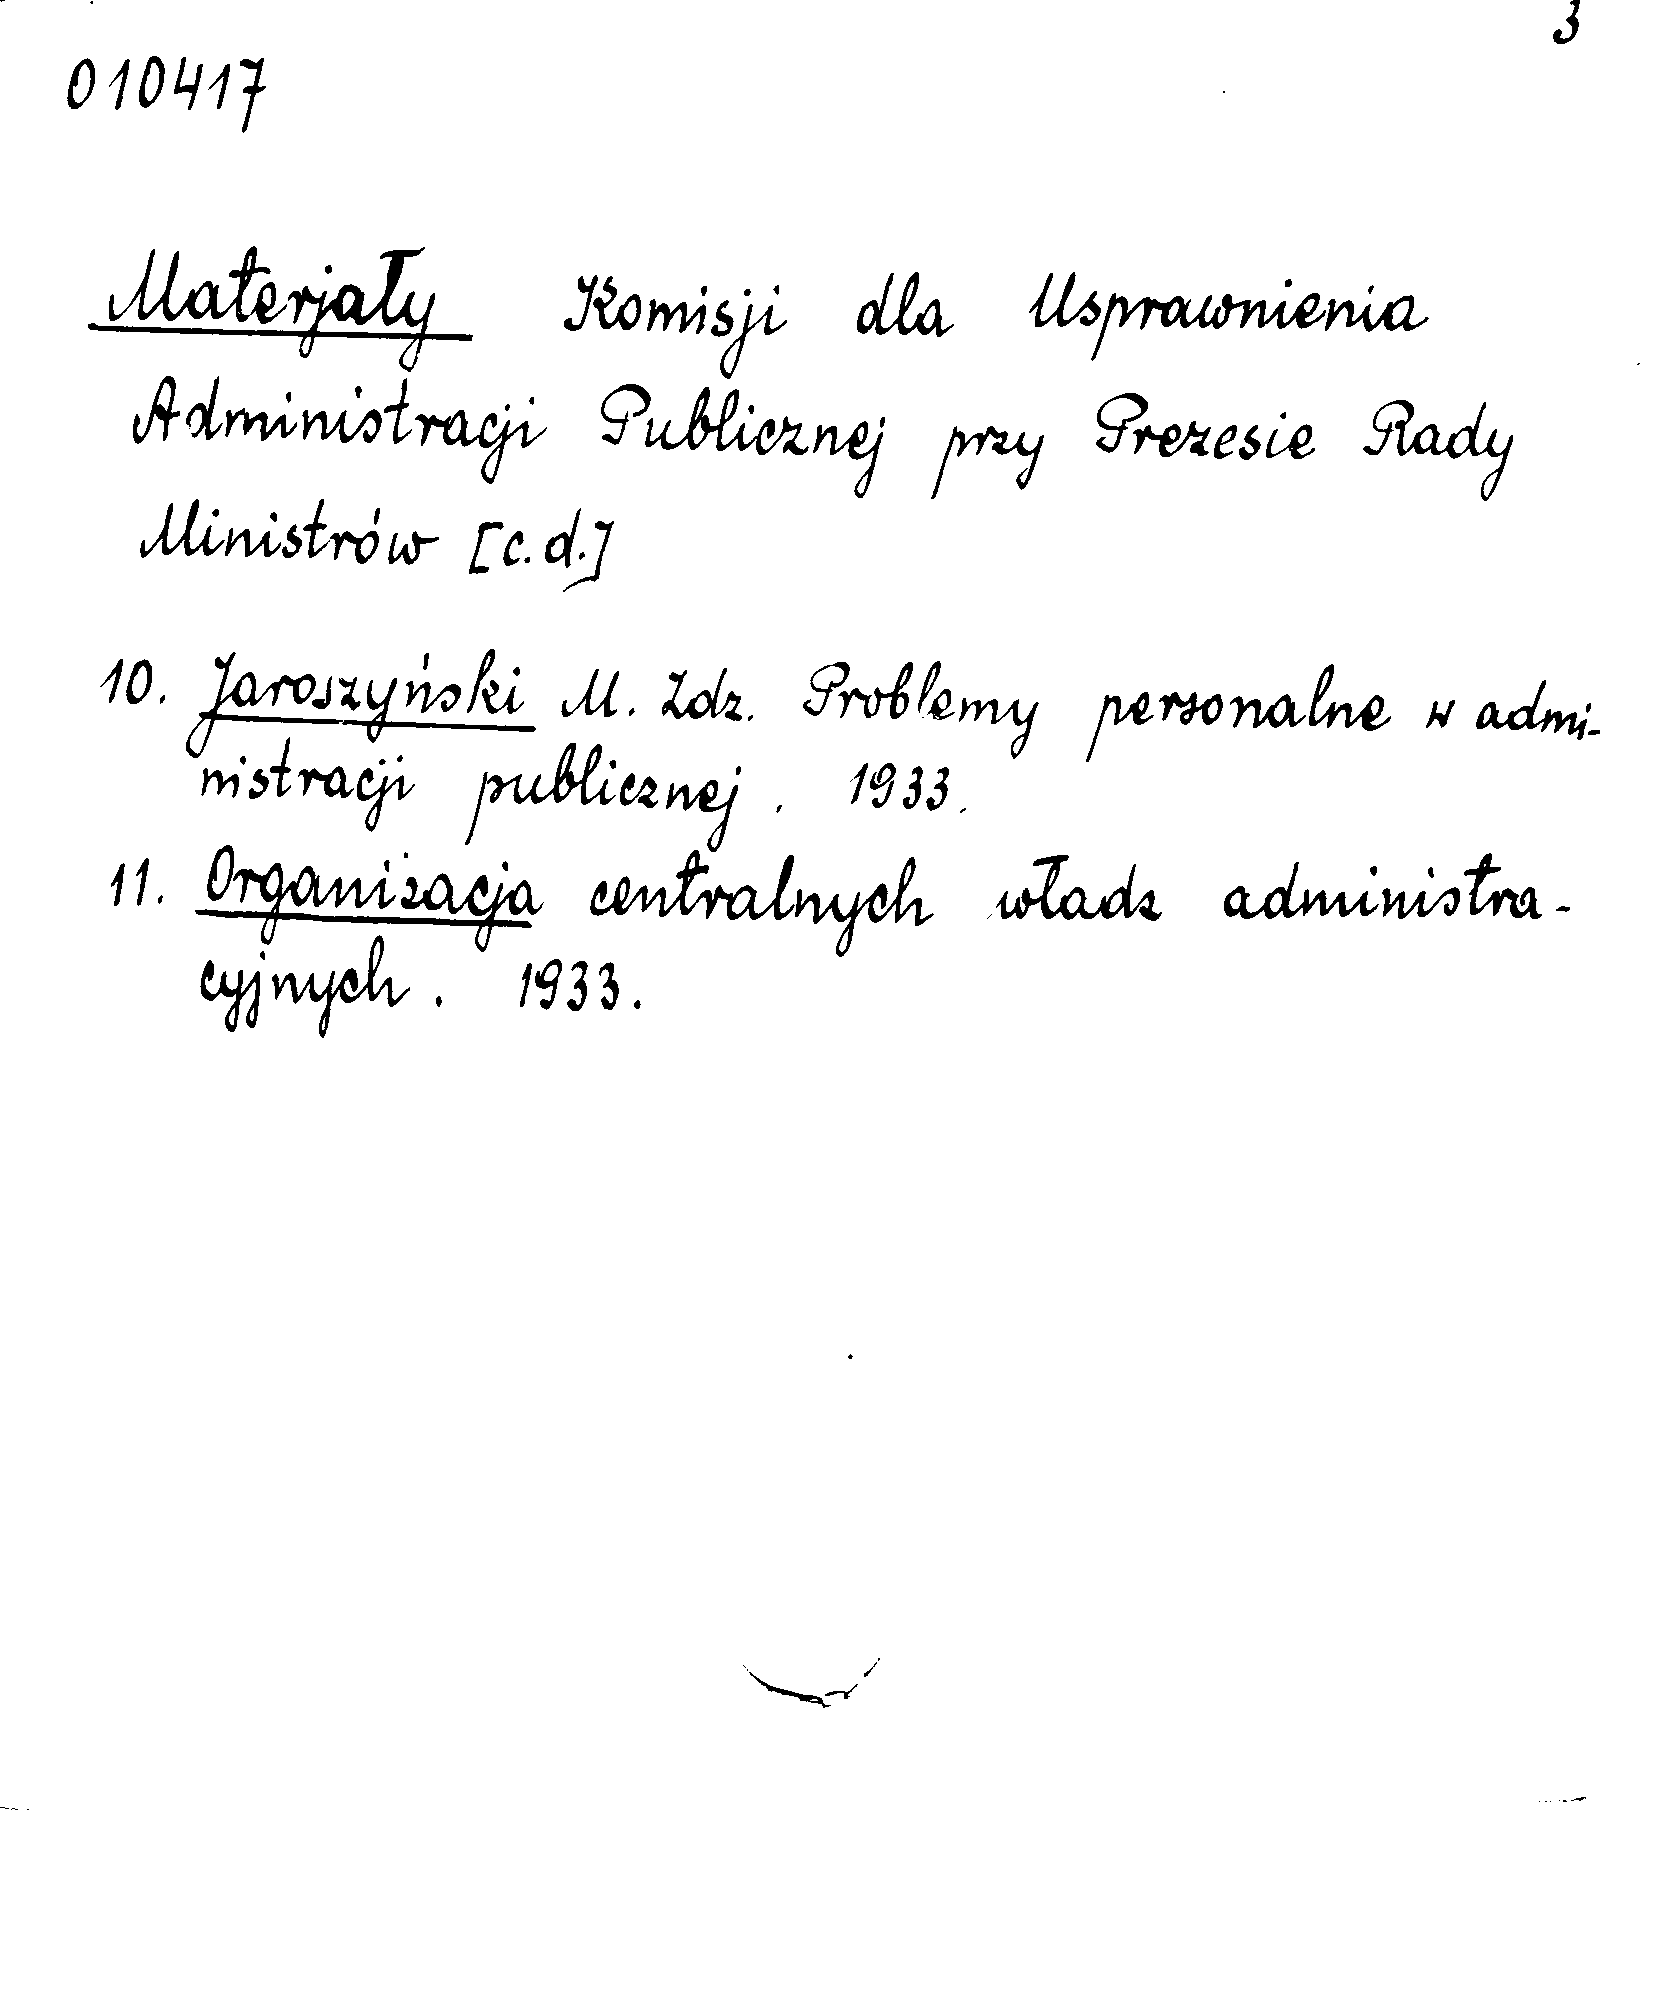 3
010417
Materjały Komisji dla Usprawnienia
Administracji Publicznej przy Prezesie Rady
Ministrów [c.d.]
10. Jaroszyński M. Zdz. Problemy personalne w admi-
nistracji publicznej. 1933.
11. Organizacja centralnych władz administra-
cyjnych. 1933.